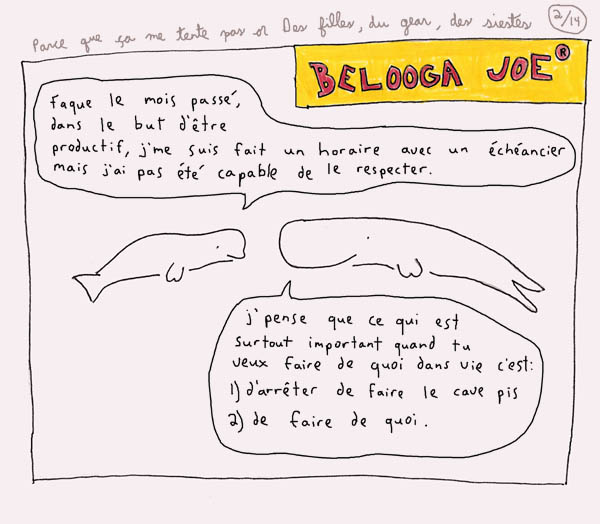 Parce que ça me tente pas or Des filles, du gear, des siestes 2/14
BELOOGA JOE®
Faque le mois passé,
dans le but d'être
productif, j'me suis fait un horaire avec un échéancier
mais j'ai pas été capable de le respecter.
j'pense que ce qui est
surtout important quand tu
veux faire de quoi dans vie c'est:
1) d'arrêter de faire le cave pis
2) de faire de quoi.